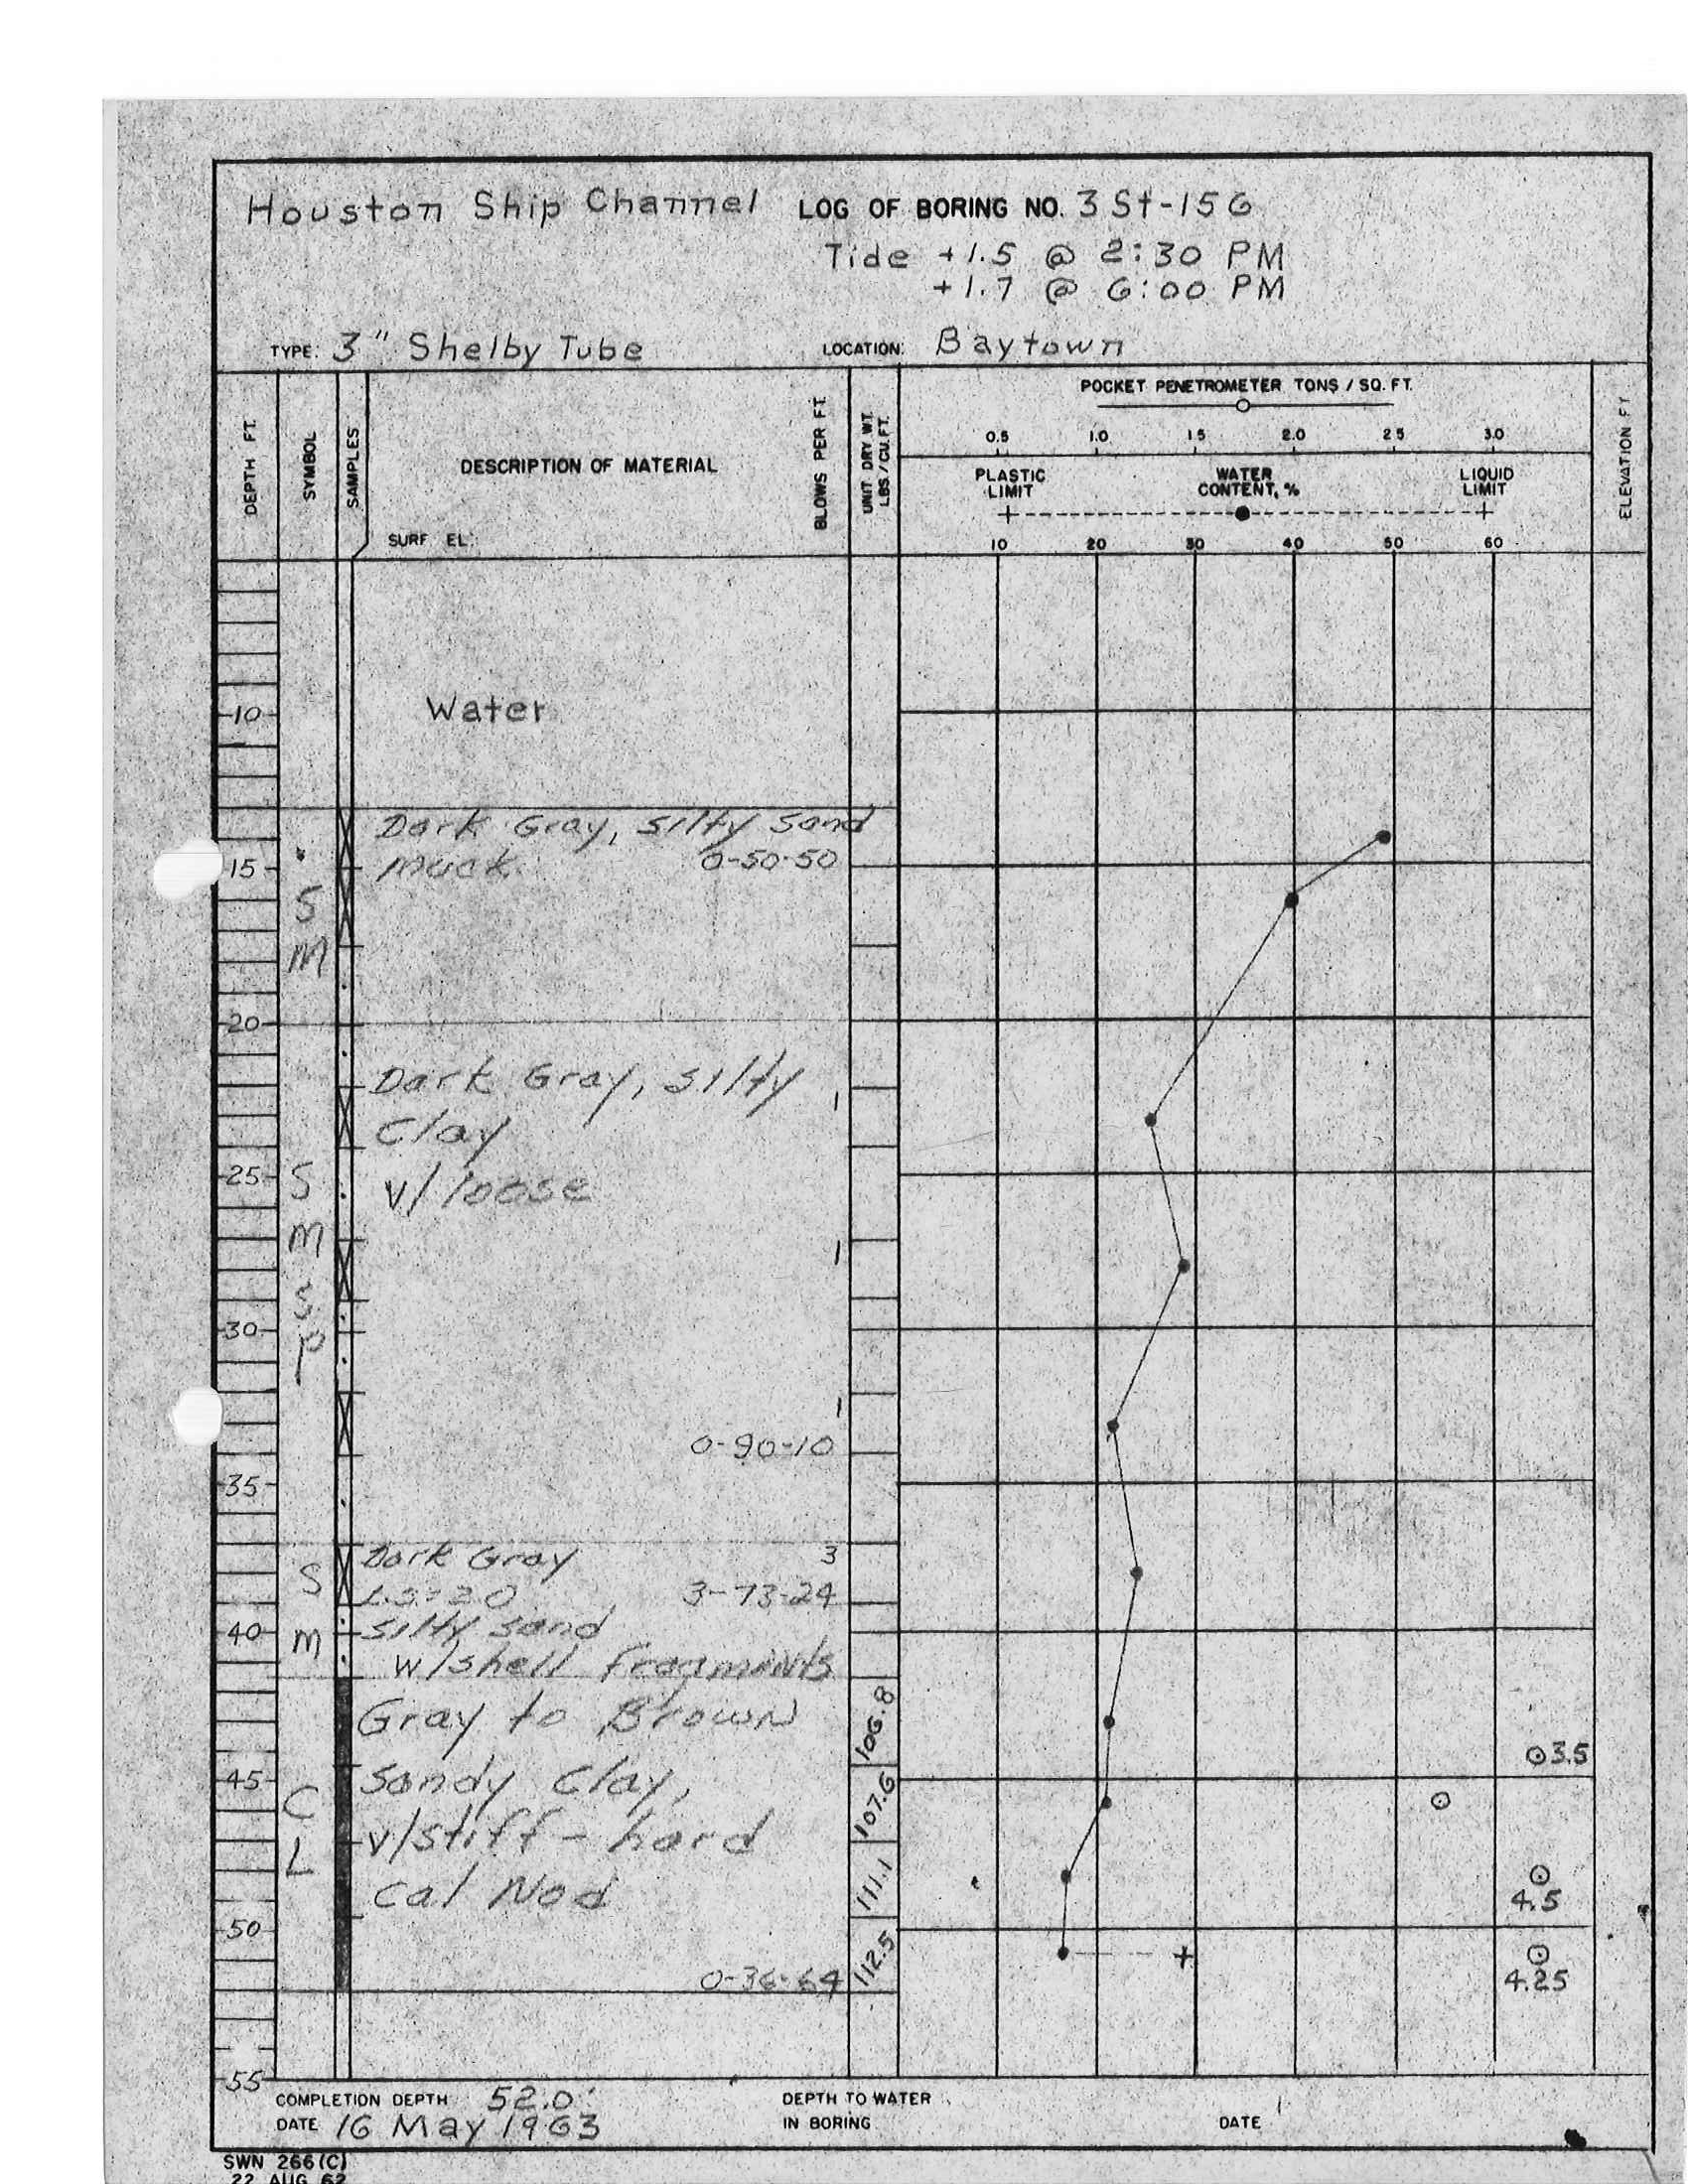 Houston Ship Channel LOG OF BORING NO. 3St-156
Tide +1.5 @ 2:30 PM
+1.7 @ 6:00 PM
TYPE: 3" Shelby Tube LOCATION: Baytown
DEPTH FT.
SYMBOL
SAMPLES
DESCRIPTION OF MATERIAL
SURF EL:
BLOWS PER FT.
UNIT DRY WT.
LBS/CU.FT.
POCKET PENETROMETER TONS / SQ. FT.
0.5 1.0 1.5 2.0 2.5 3.0
PLASTIC LIMIT
WATER CONTENT, %
LIQUID LIMIT
10 20 30 40 50 60
ELEVATION FT
10
Water
Dark Gray, Silty Sand
15 Muck 0-50-50
S
M
20
Dark Gray, silty
1
Clay
25 S v/loose
M
1
S
30
P
1
0-90-10
35
Dark Gray 3
S 3-73-24
40 M silty sand
w/shell fragments
Gray to Brown 106.8
3.5
45 Sandy Clay, 107.6
C
v/stiff - hard
L
Cal Nod 111.1
4.5
50
112.5
0-36-64
4.25
55
COMPLETION DEPTH 52.0'
DEPTH TO WATER
DATE 16 May 1963
IN BORING
DATE
SWN 266(C)
22 AUG 62